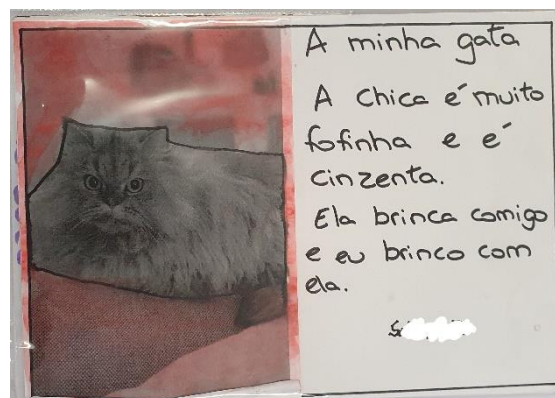 A minha gata
A Chica é muito
fofinha e é
cinzenta.
Ela brinca comigo
e eu brinco com
ela.